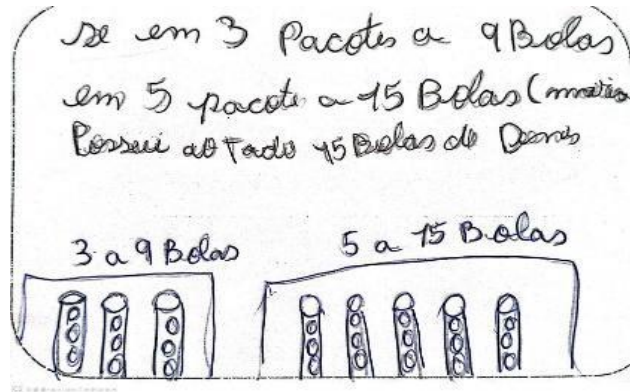 se em 3 Pacotes a 9 Bolas
em 5 pacote a 15 Bolas (
Possui ao Todo 15 Bolas de
3 a 9 Bolas
5 a 15 Bolas